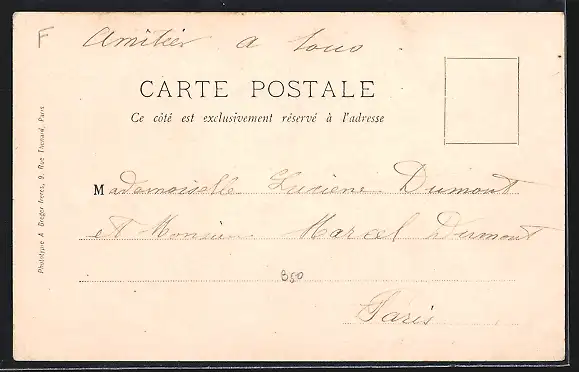 F
Amitier a tous
CARTE POSTALE
Ce côté est exclusivement réservé à l'adresse
Mademoiselle Luciene Dumont
et Monsieur Marcel Dumont
850
Paris
Phototypie A Breger frères, 9, Rue Thenard, Paris